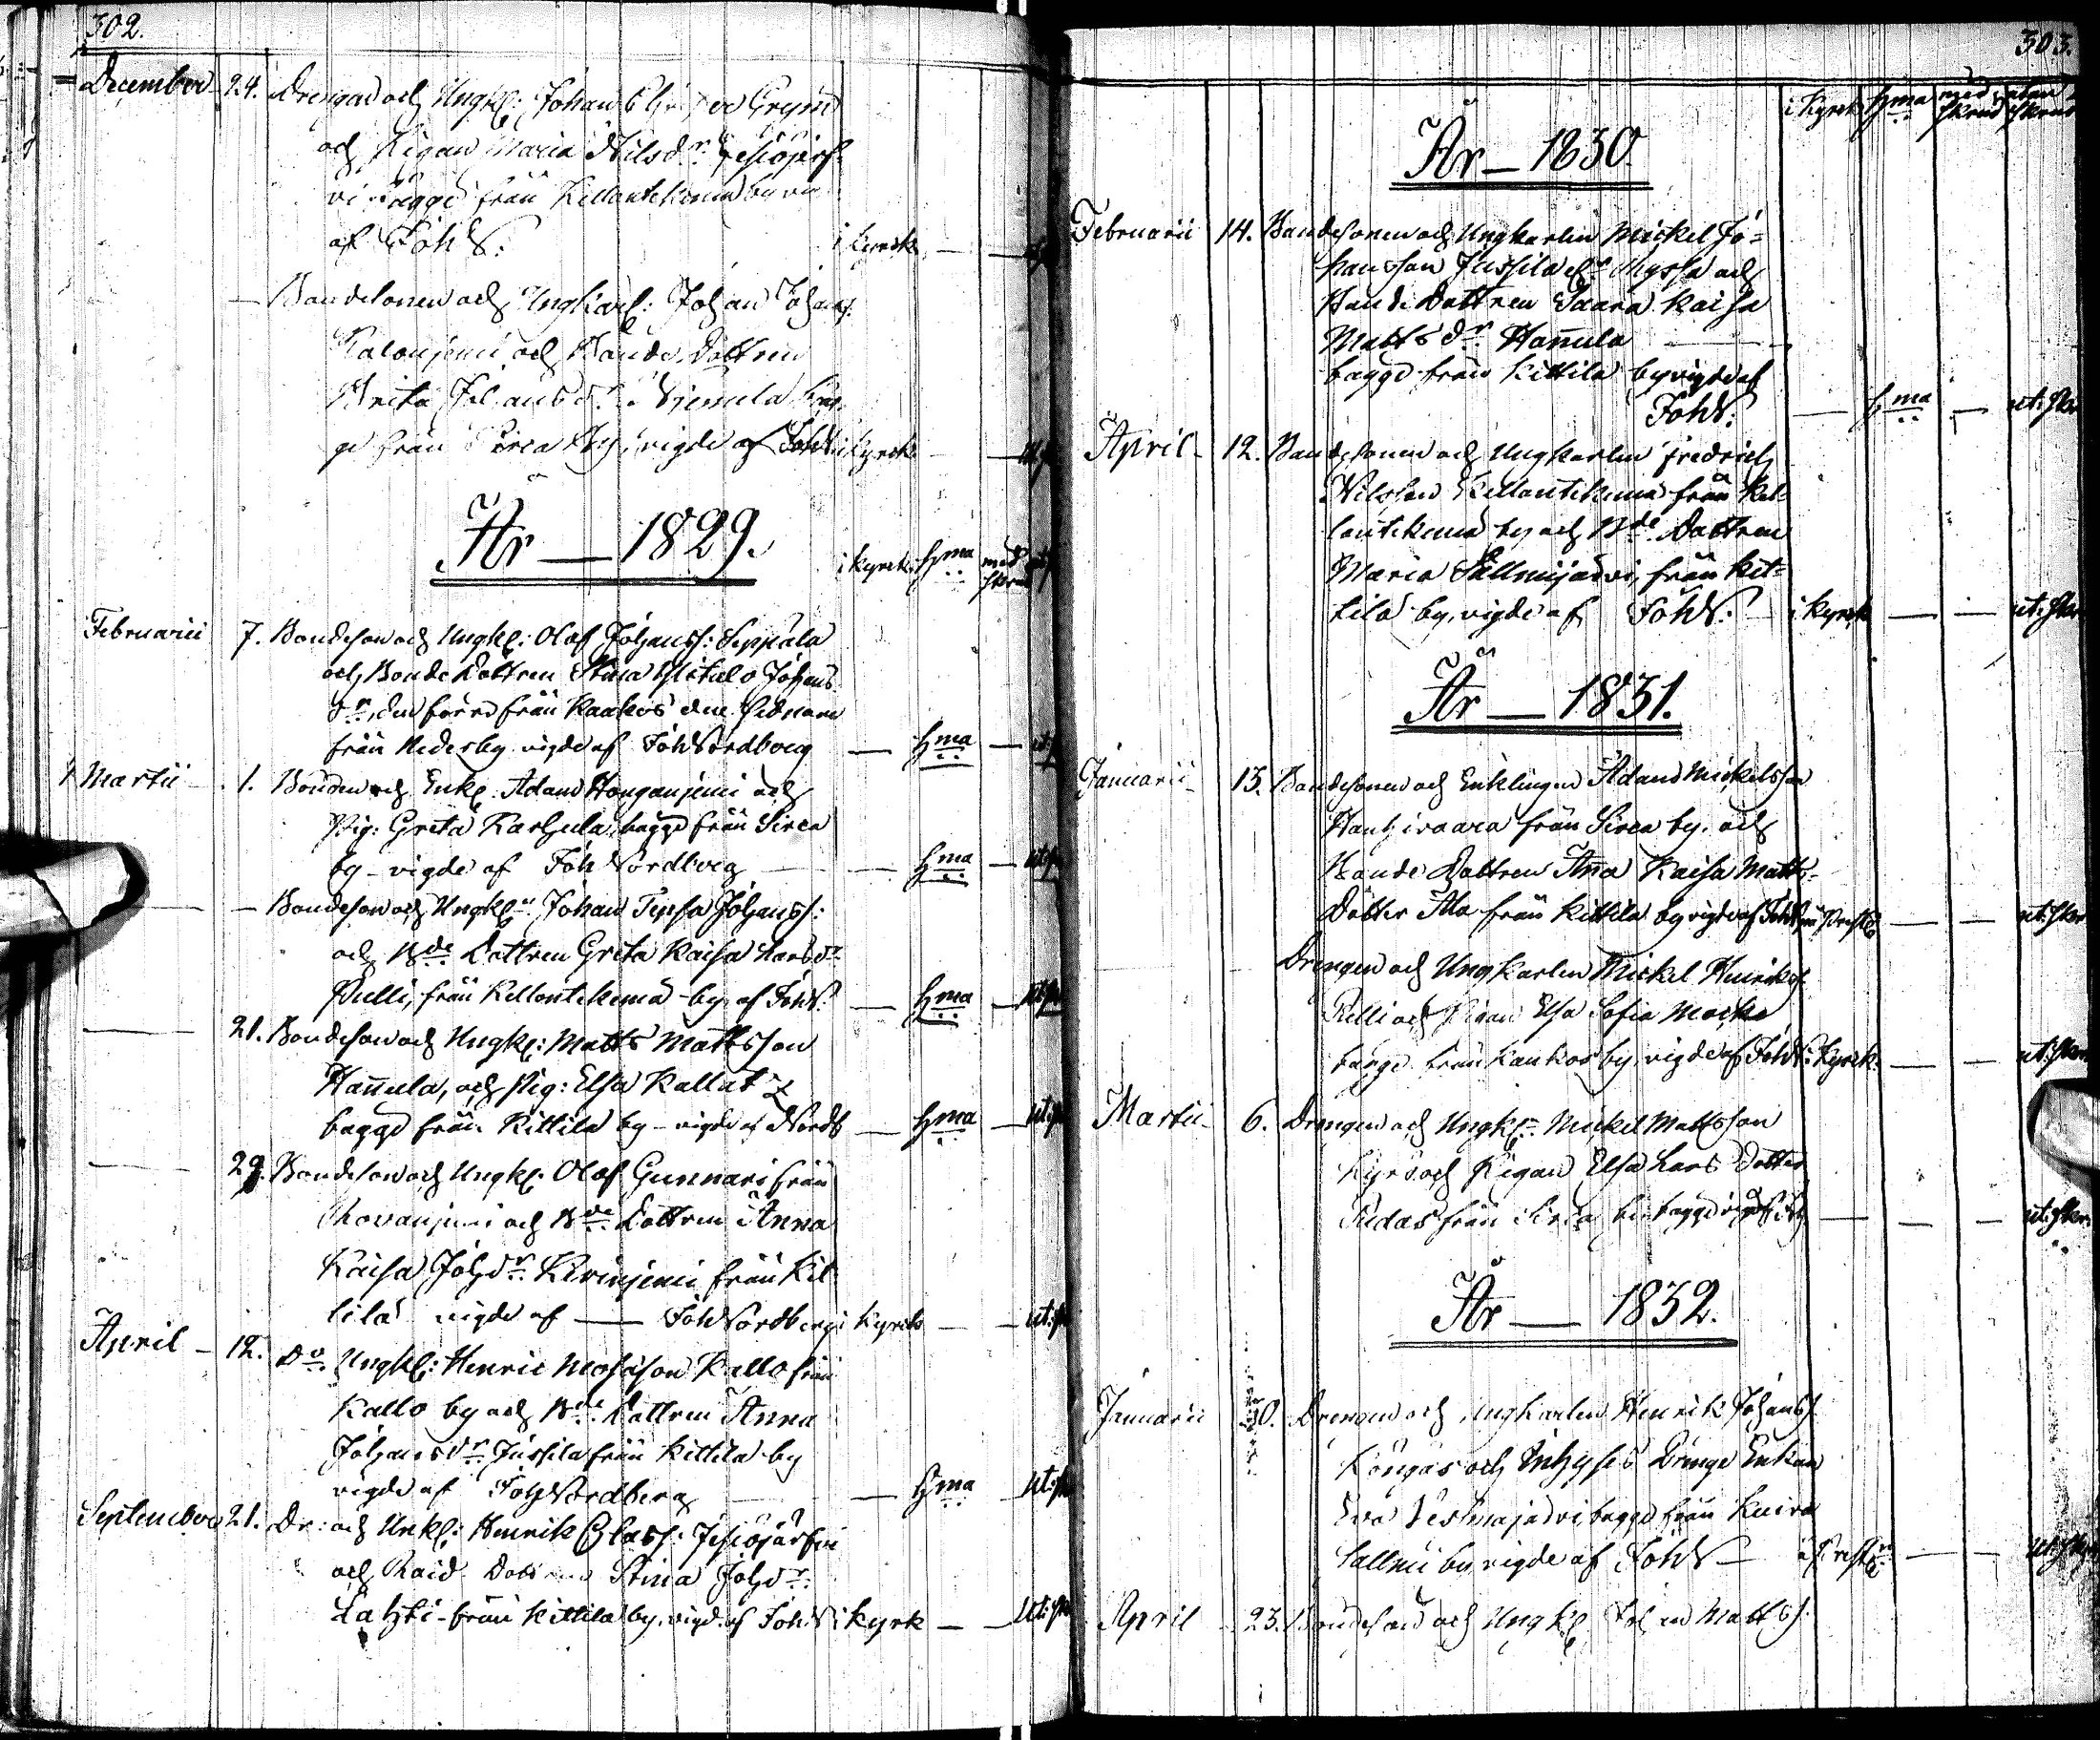 302.
December 24. Drengen och Ungk: Johan Grym
och Pigan Maria Nilsdr Jesiöjerf
vi bägge från Kellontekema by vig
af Joh N: i kyrck — —
— Bondesonen och Ungkarl: Johan Johans:
Kalonjemi och Bonde Dottren
Brita Johansdr
ge från Sirca by, vigde af Joh N i kyrck — —
År — 1829.
i kyrck. hma med skrud
Februarii 7. Bondeson och Ungk: Olof Johanss: Seppälä
och Bonde Dottren Stina Ylitalo Johans
dr, den förre från Kaukos den sednare
från Alderby vigde af Joh Nordberg — hma —
Martii 1. Bonden och Enkl. Adam Honganjemi och
Pig: Greta Karhula, bägge från Sirca
by – vigde af Joh Nordberg — hma — ut: sk
— — Bondeson och Ungkl: Johan Tepsa Johanss:
och Bde Dottren Greta Kaisa Larsdr
Pulli, från Kellontekema by, af Joh N: — hma — ut: sk
— 21. Bondeson och Ungk: Matts Mattsson
Hannula, och Pig: Elsa Kallat
bägge från Kittilä by – vigde af Nordb — hma — ut: sk
— 29. Bondeson och Ungk: Olof Gunnari från
Rovanjemi och Bde Dottren Anna
Kaisa Johdr Kivinjemi från Kit
tilä vigde af — Joh Nordberg i kyrck — — ut: sk
April – 12. Do Ungkl: Henric Mosisson Kallo från
Kallo by och Bde Dottren Anna
Johansdr Jussila från Kittilä by
vigde af Joh Nordberg — hma — ut: sk
September 21. Dr: och Unkl: Henrik Class: Jesiöjärfvi
och Stina Johdr:
Lahti – från Kittilä by, vigd. af Joh N i kyrk — — ut: sk
303.
i kyrck hma med skrud utan skrud
År — 1830.
Februarii 14. Bondesonen och Ungkarlen Mickel Jo=
hansson Jussila och
Bonde Dottren Saara Kaisa
Matts dr Hannula
bägge från Kittilä by vigde af
Joh N: — hma — ut: skr
April – 12. Bondesonen och Ungkarlen Fredrich
Nilsson Kellontekema från Kel=
lontekema by och Bde Dottren
Maria Sällmijärvi, från Kit=
tilä by, vigde af Joh N: i kyrck — — ut: skr
År — 1831.
Januarii – 13. Bondesonen och Enklingen Adam Mickelsson
Hanhivaara från Sirca by, och
Bonde Dottren Anna Kaisa Matts–
Dotter Ala från Kittilä by vigde af Joh N — — ut: skr
Drengen och Ungkarlen Mickel Henriks
Pulli och Pigan Elsa Sofia
bägge från Kaukos by, vigde af Joh N: i kyrck. — — ut: skr
Martii – 6. Drengen och Ungkl: Mickel Mattsson
Kyrö och Pigan Elsa Lars Dotter
från Sirca by bägge vigde — — — ut: skr
År — 1832.
Januarii 30. Drengen och Ungkarlen Henrik Johanss
Köngäs och Inhyses Drenge Enkan
Eva bägge från Kuiva
Sallmi by, vigde af Joh N — — — ut: skr
April 23. Bondeson och Ungkl Matts s: